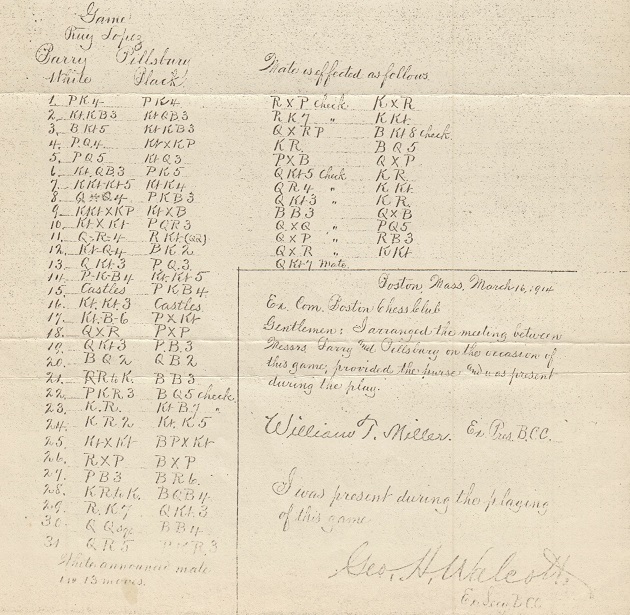 Game
Ruy Lopez
Barry Pillsbury
White Black
1 PK4 PK4
2 Kt.KB3 KtQB3
3 BKt5 KtKB3
4 P.Q.4 KtXKP
5 PQ5 KtQ3
6 Kt.QB3 PK5
7 KKtKt5 KtK4
8 Q Q4 PKB3
9 KKtXKP KtXB
10 KtXKt PQR3
11 Q-R-4 RKt(QR)
12 Kt-Q4 BK2
13 QKt3 PQ3
14 P-K-B4 Kt-Kt5
15 Castles PKB4
16 Kt.Kt.3 Castles
17 Kt.B-6 PXKt
18 QXR PXP
19 QKt3 PB3
20 BQ2 QB2
21 QRtoK. BB3
22 PKR3 BQ5 check
23 K.R. KtB7 "
24 KR2 Kt.K5
25 KtXKt BPXKt
26 RXP BXP
27 PB3 BR6
28 KRtoK. BQB4
29 R.K7 QKt3
30 Q BB4
31 QR5 R.3
White announced mate
in 13 moves.
Mate is effected as follows
RXP Check KXR
RK7 " KKt
QXRP BKt8 check
KR BQ5
PXB QXP
QKt5 Check KR
QR4 " KKt
QKt3 " KR
BB3 QXB
QXQ " PQ5
QXP " RB3
QXR " KKt
QKt7 Mate
Boston Mass, March 16, 1914
Ex. Com. Bostin Chess Club
Gentlemen: I arranged the meeting between
Messrs Barry and Pillsbury on the occasion of
this game, provided the purse and was present
during the play.
William T. Miller. Ex Pres. B.C.C.
I was present during the playing
of this game
Geo. H. Walcott